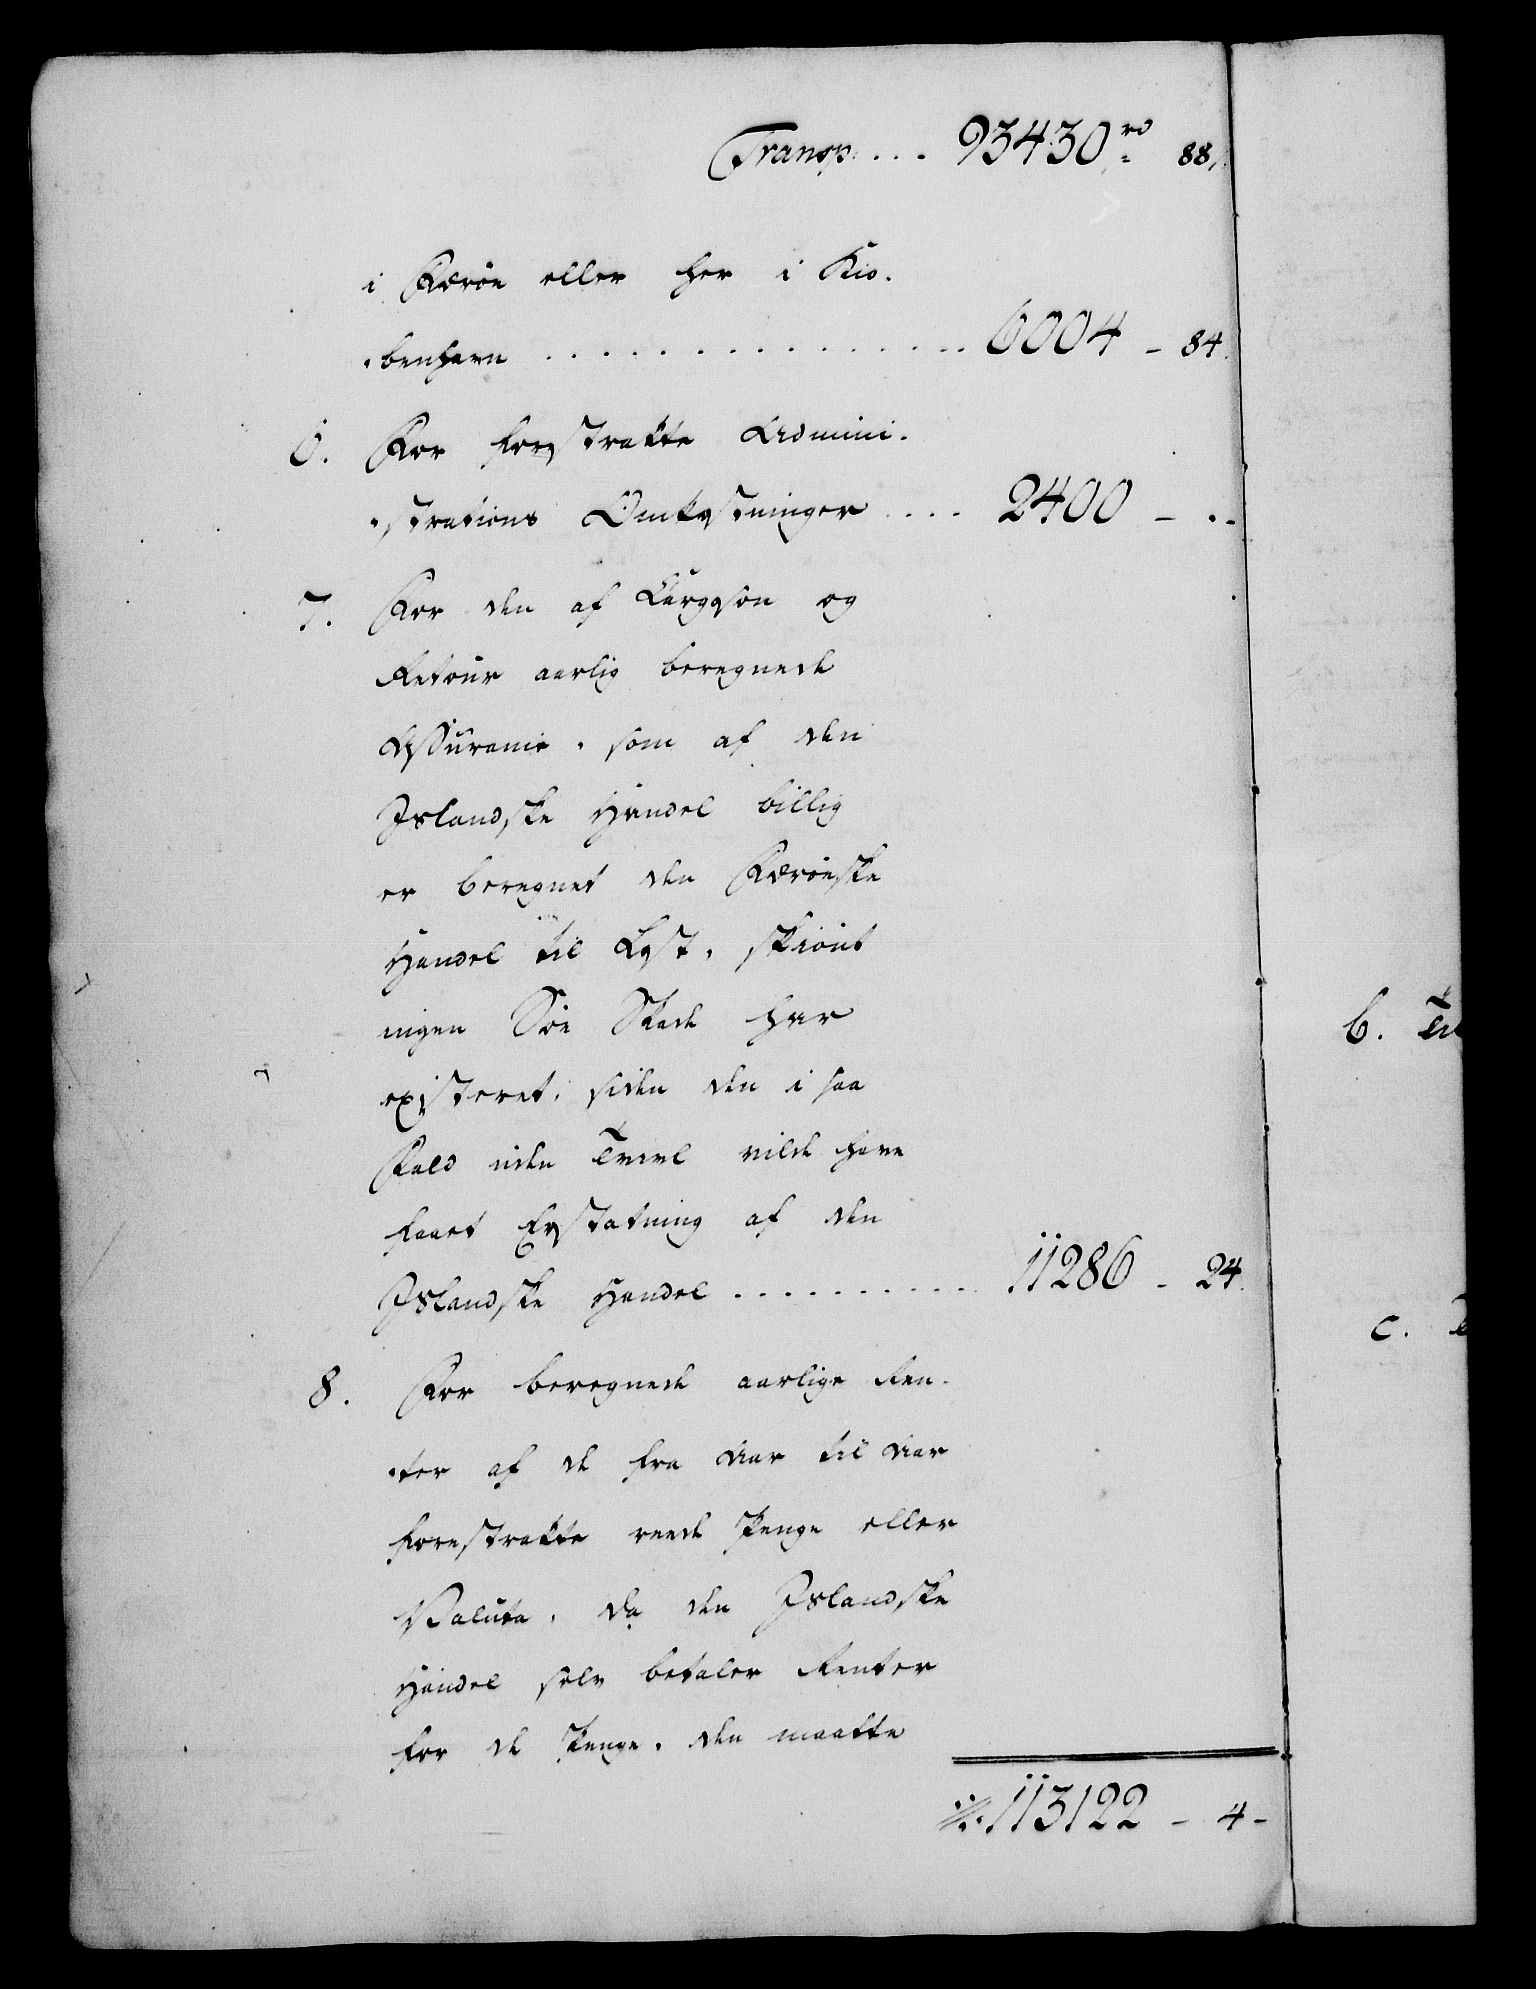 Transp. . . . 93430 rd 88,
i Færøe eller her i Kiø-
-benhavn . . . . . . . . . . . . . . . 6004 - 84.
6. For forstrakte Admini-
-strations Omkostninger . . . . 2400 - . -
7. For den af Cargeson og
Retour aarlig beregnede
Assurance, som af den
Islandske Handel billig
er beregnet den Færøeske
Handel til Last, skiønt
ingen Søe Skade har
existeret, siden den i saa
Fald uden Tvivl vilde have
faaet Erstatning af den
Islandske Handel . . . . . . . . . . 11286 - 24.
8. For beregnede aarlige Ren-
-ter af de fra Aar til Aar
forestrakte reede Penge eller
Valuta, da den Islandske
Handel selv betaler Renter
for de Penge, den maatte
113122 - 4 -
b.
c.